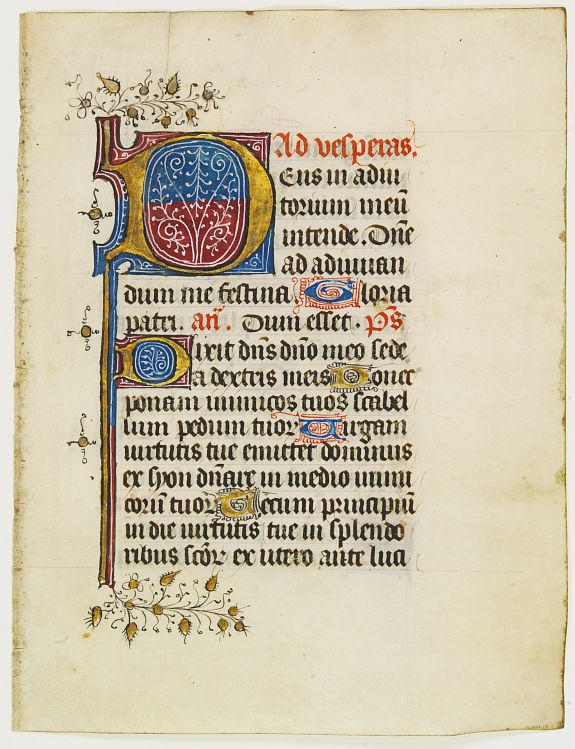 Ad vesperas.
Deus in adiu
torium meū
intende. Dn̄e
ad adiuuan
dum me festina. Gloria
patri. an̄. Dum esset. p̄s
Dixit dn̄s dn̄o meo sede
a dextris meis Donec
ponam inimicos tuos scabel
lum pedum tuoꝝ Uirgam
uirtutis tue emittet dominus
ex syon dn̄are in medio inimi
corū tuoꝝ Tecum principiū
in die uirtutis tue in splendo
ribus sc̄oꝝ ex utero ante luci